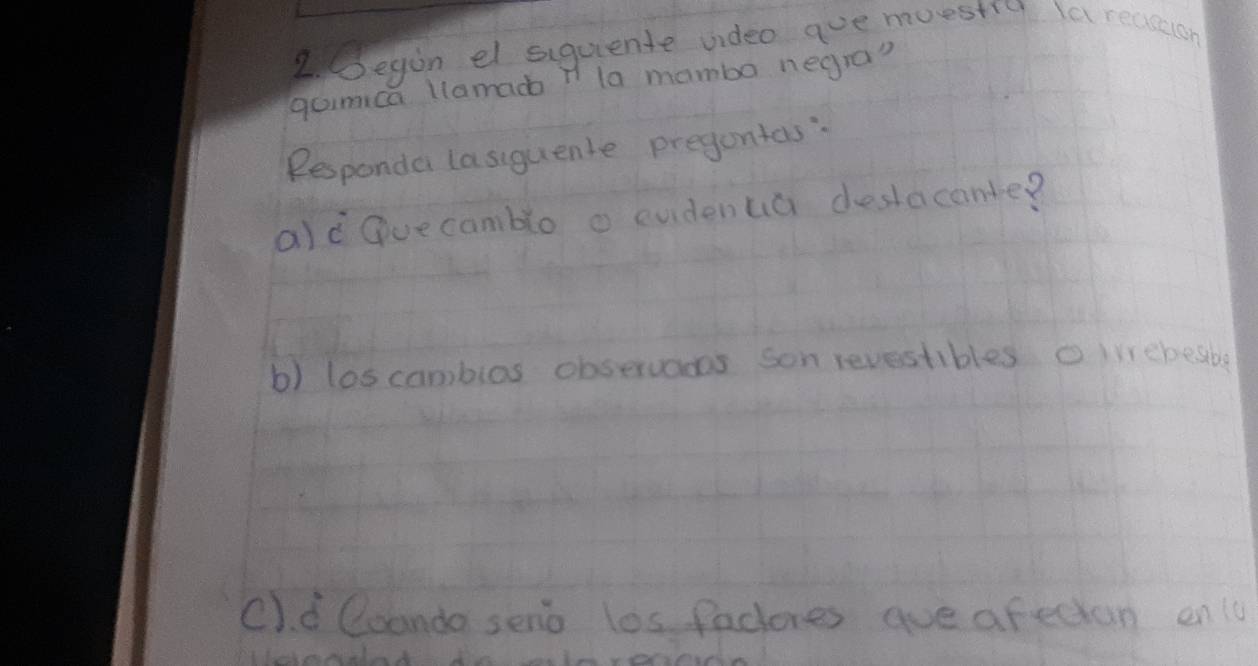 2. Según el siguiente video que muestra la reaccion
quimica llamado "la mamba negra"
Responda la siguente preguntas:
a) ¿Que cambio o evidencia destacante?
b) los cambios observados son revestibles o irrebesible
c). ¿Cuando serio los factores que afectan en la